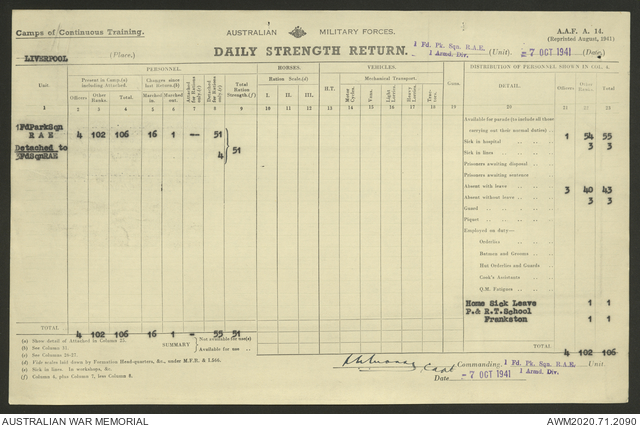 Camps of Continuous Training.
AUSTRALIAN MILITARY FORCES.
A.A.F. A. 14.
(Reprinted August, 1941)
LIVERPOOL (Place.)
DAILY STRENGTH RETURN.
1 Fd. Pk. Sqn. R.A.E. (Unit).
1 Armd. Div.
-7 OCT 1941 (Date)
PERSONNEL.
HORSES.
VEHICLES.
DISTRIBUTION OF PERSONNEL SHOWN IN COL. 4.
Unit.
Present in Camp (a) including Attached.
Changes since last Return. (b)
Attached for Rations only (c)
Detached for Rations only (c)
Total Ration Strength. (f)
Ration Scale. (d)
H.T.
Mechanical Transport.
Guns.
DETAIL.
Officers
Other Ranks.
Total.
Officers.
Other Ranks.
Total.
Marched in.
Marched out.
I. II. III.
Motor Cycles.
Vans.
Light Lorries.
Heavy Lorries.
Trac-tors.
1 2 3 4 5 6 7 8 9 10 11 12 13 14 15 16 17 18 19 20 21 22 23
1FdParkSqn
R A E 4 102 106 16 1 — 51
Detached to
3FdSqnRAE 4
51
Available for parade (to include all those
carrying out their normal duties) 1 54 55
Sick in hospital 3 3
Sick in lines
Prisoners awaiting disposal
Prisoners awaiting sentence
Absent with leave 3 40 43
Absent without leave 3 3
Guard
Piquet
Employed on duty—
Orderlies
Batmen and Grooms
Hut Orderlies and Guards
Cook's Assistants
Q.M. Fatigues
Home Sick Leave 1 1
P.& R.T.School
Frankston 1 1
TOTAL 4 102 106 16 1 — 55 51
TOTAL 4 102 106
(a) Show detail of Attached in Column 22.
(b) See Column 21.
(c) See Columns 20-27.
(d) Vide scales laid down by Formation Head-quarters, &c., under M.F.R. & I.
(e) Sick in lines. In workshops, &c.
(f) Column 4, plus Column 7, less Column 8.
SUMMARY
Not available for use (e)
Available for use
Capt Commanding. 1 Fd. Pk. Sqn. R.A.E. Unit
1 Armd. Div.
Date -7 OCT 1941
AUSTRALIAN WAR MEMORIAL
AWM2020.71.2090